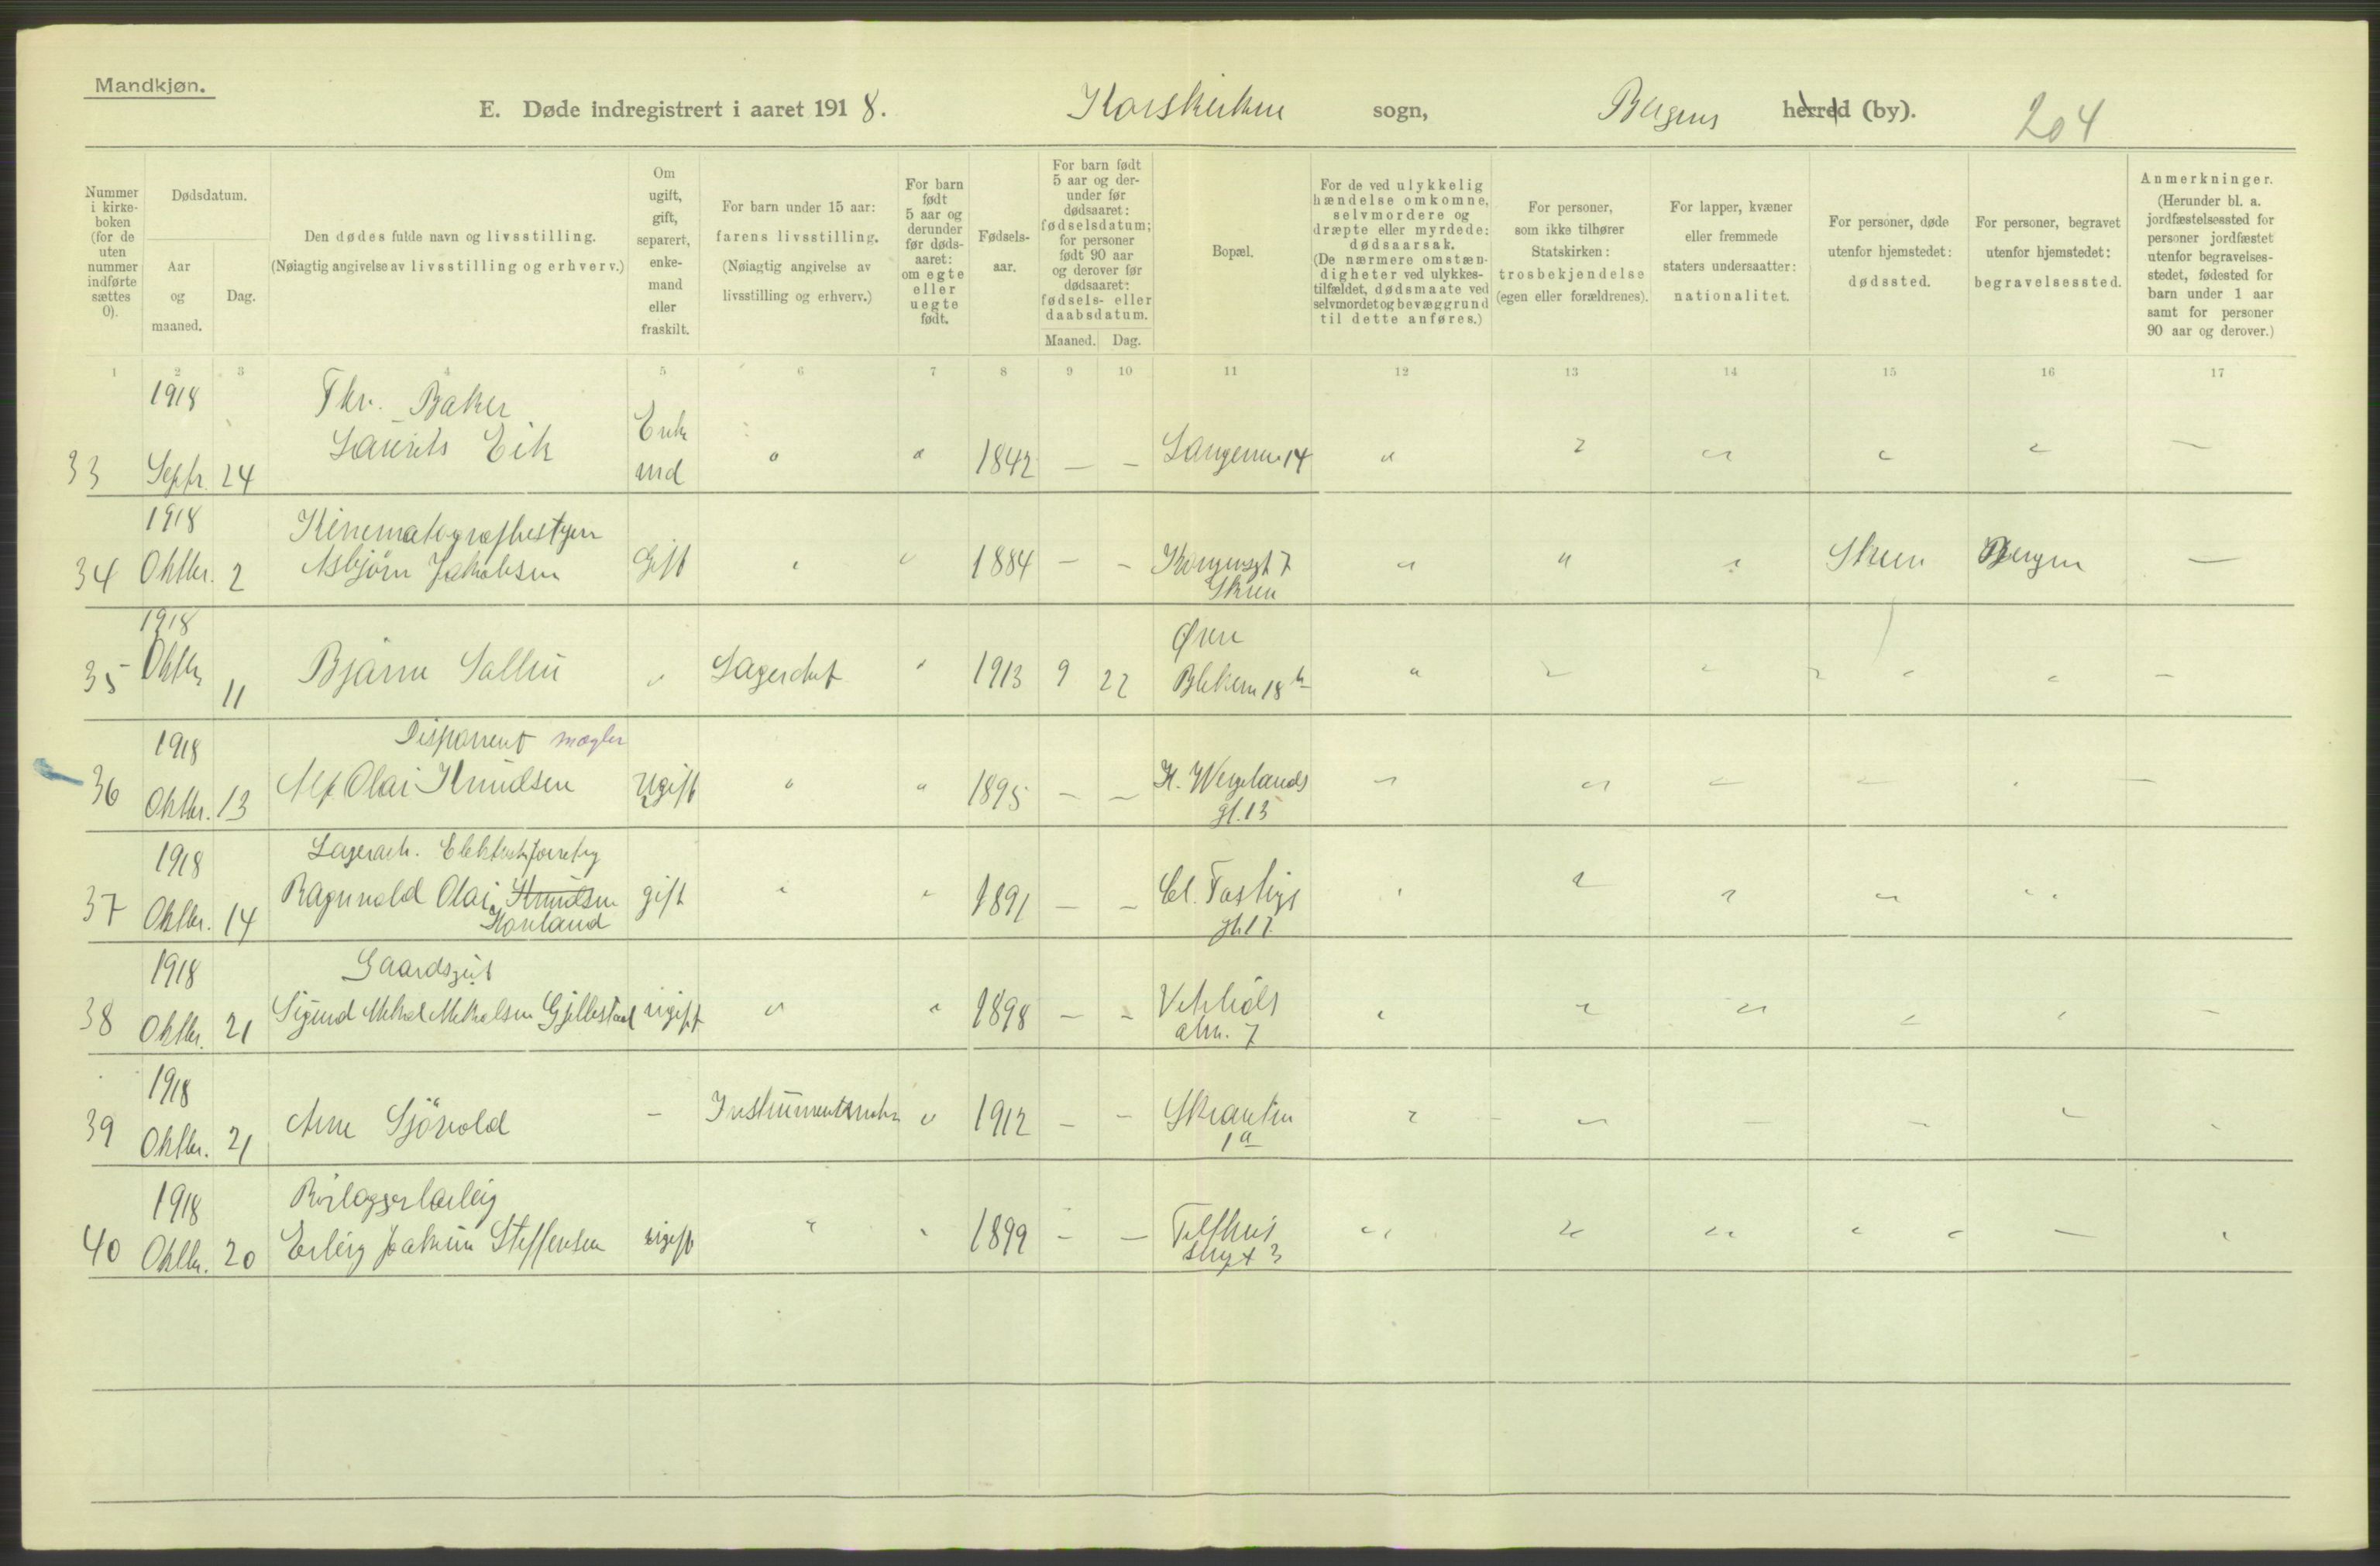 Mandkjøn.
E. Døde indregistrert i aaret 1918. Korskirken sogn, Bergens herred (by). 204
Nummer i kirke-boken (for de uten nummer indførte sættes 0).
Dødsdatum.
Aar og maaned.
Dag.
Den dødes fulde navn og livsstilling.
(Nøiagtig angivelse av livsstilling og erhverv.)
Om ugift, gift, separert, enke-mand eller fraskilt.
For barn under 15 aar: farens livsstilling. (Nøiagtig angivelse av livsstilling og erhverv.)
For barn født 5 aar og derunder før døds-aaret: om egte eller uegte født.
Fødsels-aar.
For barn født 5 aar og der-under før dødsaaret: fødselsdatum; for personer født 90 aar og derover før dødsaaret: fødsels- eller daabsdatum.
Maaned. Dag.
Bopæl.
For de ved ulykkelig hændelse omkomne, selvmordere og dræpte eller myrdede: dødsaarsak. (De nærmere omstæn-digheter ved ulykkes-tilfældet, dødsmaate ved selvmordet og bevæggrund til dette anføres.)
For personer, som ikke tilhører Statskirken: trosbekjendelse (egen eller forældrenes).
For lapper, kvæner eller fremmede staters undersaatter: nationalitet.
For personer, døde utenfor hjemstedet: dødssted.
For personer, begravet utenfor hjemstedet: begravelsessted.
Anmerkninger. (Herunder bl. a. jordfæstelsessted for personer jordfæstet utenfor begravelses-stedet, fødested for barn under 1 aar samt for personer 90 aar og derover.)
1 2 3 4 5 6 7 8 9 10 11 12 13 14 15 16 17
1918 Fhv. Baker Enke
33 Septr. 24 Laurits Eik md " " 1842 — — 14 " " " " " —
1918
34 Oktbr. 2 Asbjørn Jakobsen Gift " " 1884 — — Kongensgt 7 " " " Skien Bergen —
Skien
1918 Øvre
35 Oktbr 11 Bjarne " " 1913 9 22 Blekevn 18 b " " " " " —
1918 Disponent mægler
36 Oktbr. 13 Alf Olai Knudsen Ugift " " 1895 — — H. Wergelands " " " " " —
gt. 13
1918 Lagerarb.
37 Oktbr. 14 Ragnvald Olai Knudsen gift " " 1891 — — " " " " "
1918 Gaardsgut
38 Oktbr. 21 Sigurd Gjellestad ugift " " 1898 — — " " " " " —
alm. 7
1918
39 Oktbr. 21 Arne Sjövold — " 1912 — — " " — — "
1 a
1918
40 Oktbr. 20 Erling Joakim Steffensen ugift " " 1899 — — " " " " " — "